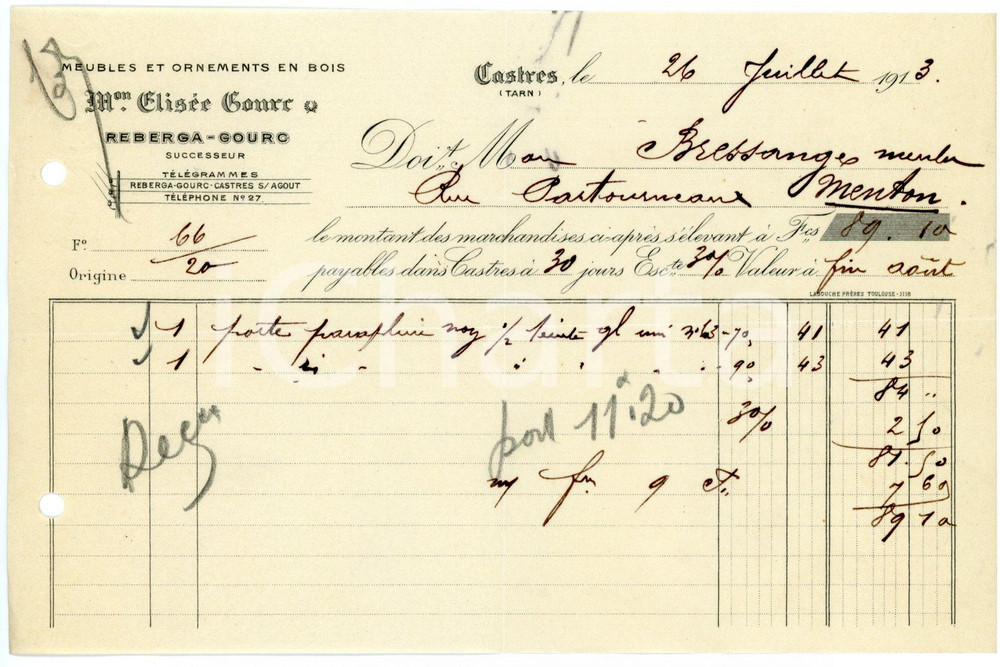 MEUBLES ET ORNEMENTS EN BOIS
Mon. Elisée Gourc
REBERGA-GOURC
SUCCESSEUR
TÉLÉGRAMMES
REBERGA-GOURC-CASTRES S/AGOUT
TÉLÉPHONE No 27
Castres, le 26 Juillet 1913.
(TARN)
Doit, M
Rue Partourneaux Menton.
le montant des marchandises ci-après s'élevant à Fcs 89.10
payables dans Castres à 30 jours Escte 3% Valeur à fin août
Fo. 66
Origine 20
LABOUCHE FRÈRES TOULOUSE
1 porte parapluie noy teinte gl uni 70 41 41
1 90 43 43
84 "
3% 2 50
81.50
7 60
89 10
Reçu
port 11.20
iCharta